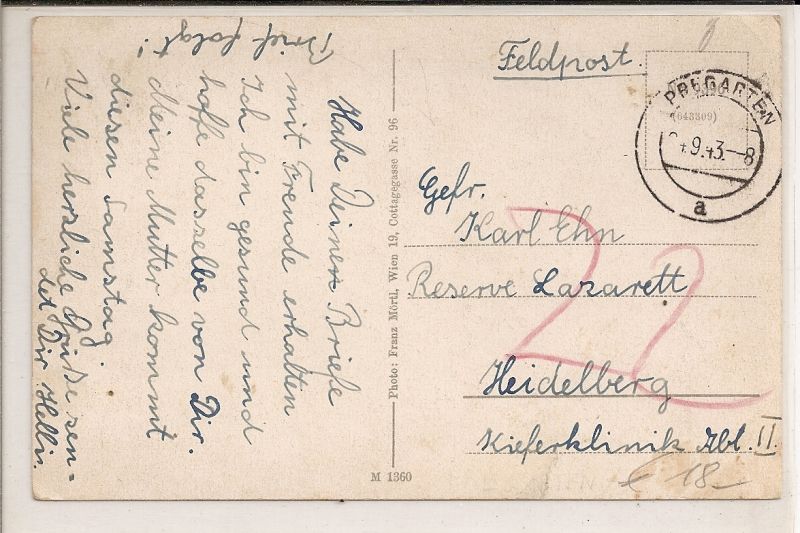 Habe Deinen Briefe
mit Freude erhalten
Ich bin gesund und
hoffe dasselbe von Dir.
Meine Mutter kommt
diesen Samstag.
Viele herzliche Grüße sen-
det Dir Helli.
Brief folgt!
Photo: Franz Mörtl, Wien 19, Cottagegasse Nr. 96
M 1360
Feldpost.
PREGARTEN
(643309)
4.9.43.-8
a
Gefr.
Karl Ehn
Reserve Lazarett
Heidelberg
Kieferklinik Abl. II.
22
€ 18-